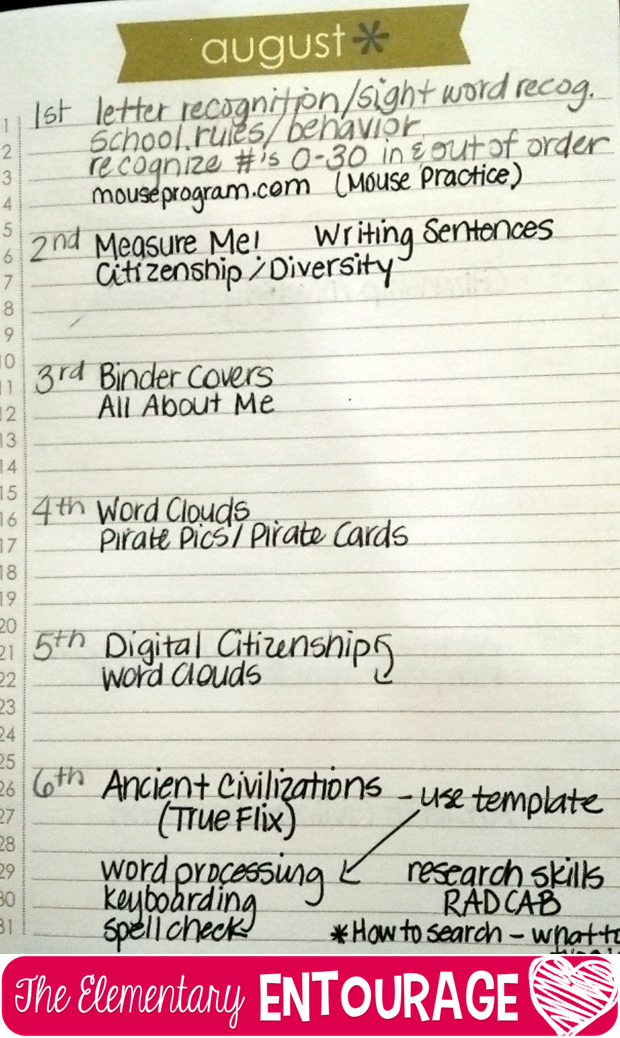 august*
1 1st letter recognition/sight word recog.
2 school rules/behavior
3 recognize #'s 0-30 in & out of order
4 mouseprogram.com (Mouse Practice)
5
6 2nd Measure Me! Writing Sentences
7 Citizenship/Diversity
8
9
10
11 3rd Binder Covers
12 All About Me
13
14
15
16 4th Word Clouds
17 Pirate Pics/Pirate Cards
18
19
20
21 5th Digital Citizenship
22 Word Clouds
23
24
25
26 6th Ancient Civilizations - use template
27 (True Flix)
28
29 word processing research skills
30 keyboarding RADCAB
31 spell check *How to search - what to
The Elementary ENTOURAGE